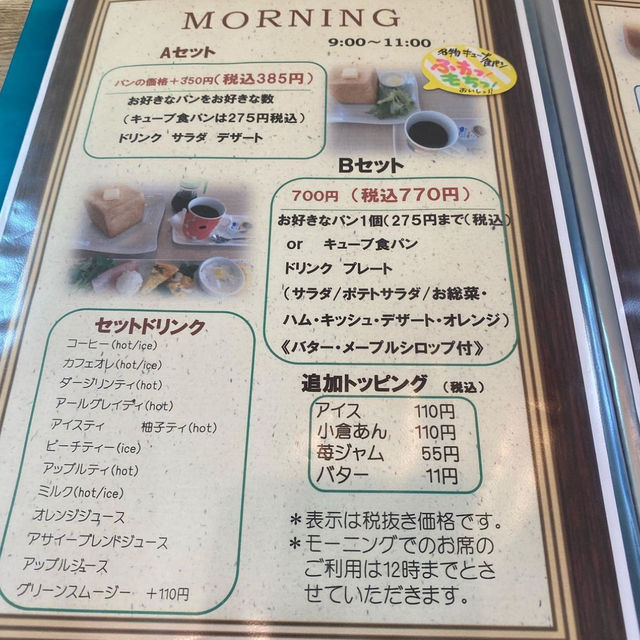 MORNING
9:00～11:00
Aセット
パンの価格＋350円(税込385円)
お好きなパンをお好きな数
(キューブ食パンは275円税込)
ドリンク サラダ デザート
名物 キューブ食パン
ふわっ
もちっ
おいしい!!
Bセット
700円 (税込770円)
お好きなパン1個(275円まで(税込)
or キューブ食パン
ドリンク プレート
(サラダ/ポテトサラダ/お総菜・
ハム・キッシュ・デザート・オレンジ)
《バター・メープルシロップ付》
セットドリンク
コーヒー(hot/ice)
カフェオレ(hot/ice)
ダージリンティ(hot)
アールグレイティ(hot)
アイスティ 柚子ティ(hot)
ピーチティー(ice)
アップルティ(hot)
ミルク(hot/ice)
オレンジジュース
アサイーブレンドジュース
アップルジュース
グリーンスムージー ＋110円
追加トッピング (税込)
アイス 110円
小倉あん 110円
苺ジャム 55円
バター 11円
＊表示は税抜き価格です。
＊モーニングでのお席の
ご利用は12時までとさ
せていただきます。